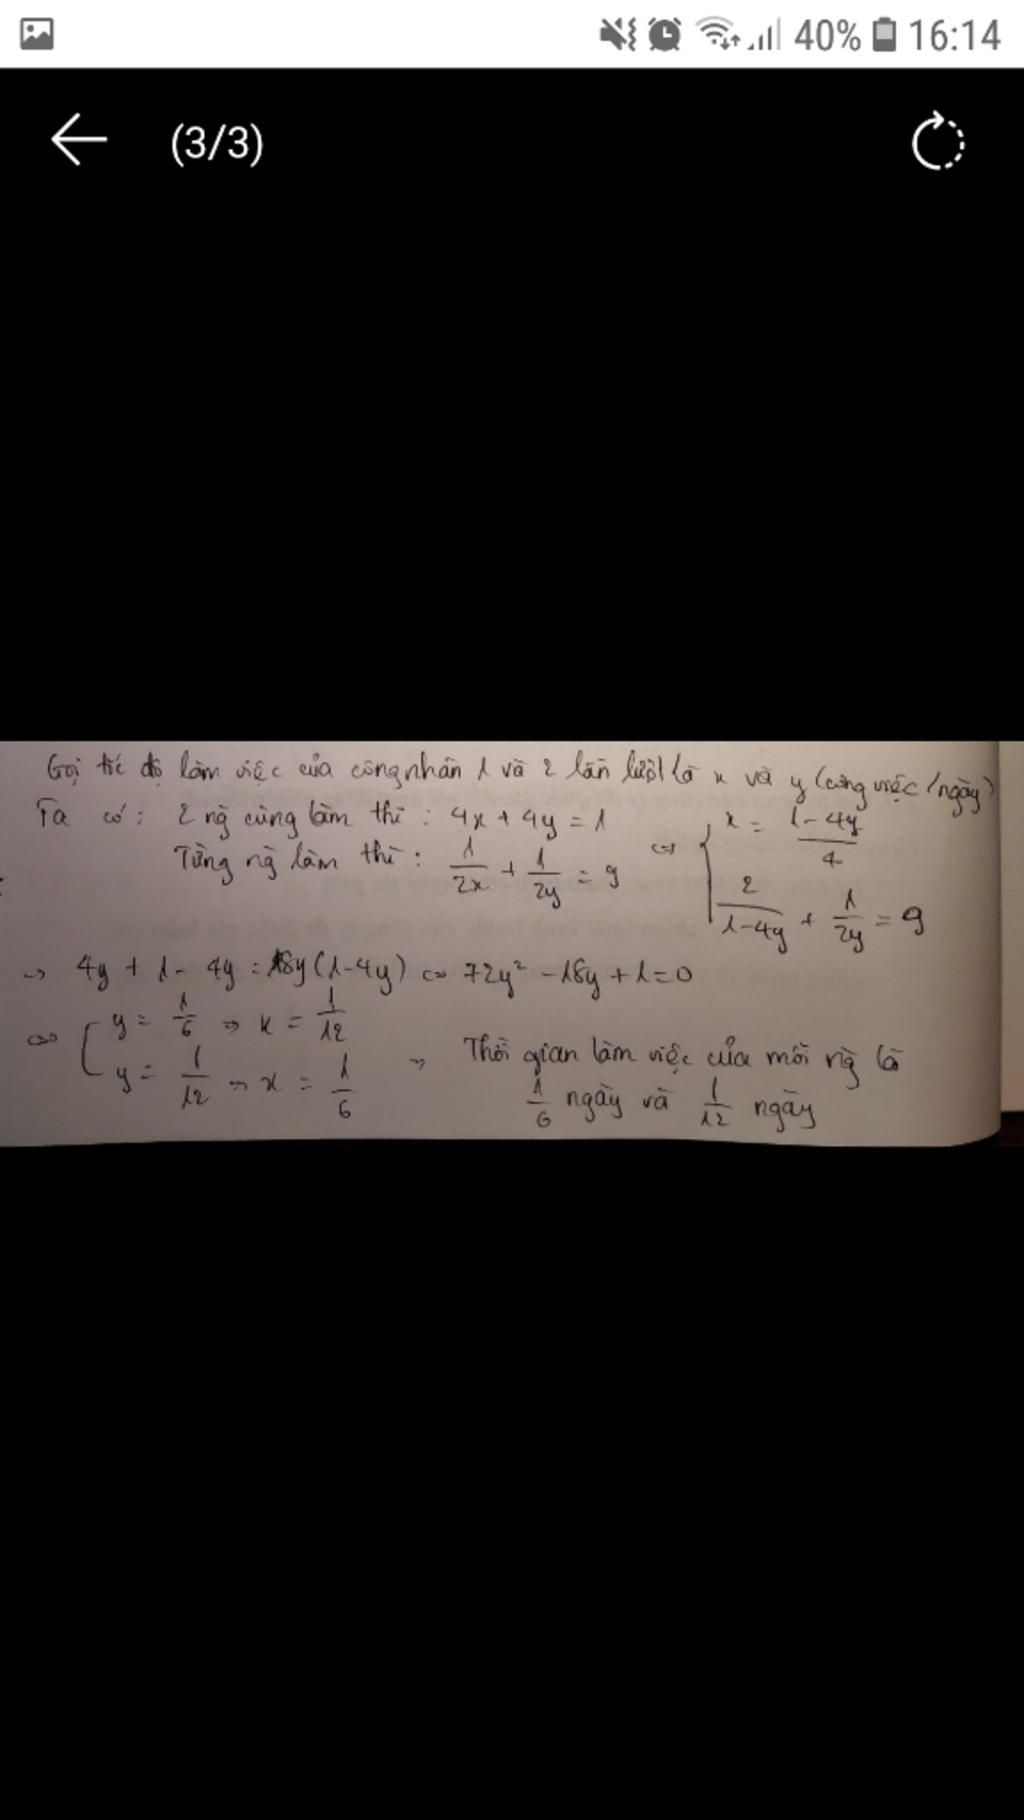 40% 16:14
(3/3)
Gọi tốc độ làm việc của công nhân 1 và 2 lần lượt là x và y (công việc/ngày)
Ta có: 2 ng̀ cùng làm thì: 4x + 4y = 1
Từng ng̀ làm thì: 1/2x + 1/2y = 9
⇔ { x = (1-4y)/4
2/(1-4y) + 1/2y = 9
→ 4y + 1 - 4y = 18y(1-4y) ⇔ 72y² - 18y + 1 = 0
⇔ [ y = 1/6 ⇒ x = 1/12
y = 1/12 ⇒ x = 1/6
⇒ Thời gian làm việc của mỗi ng̀ là
1/6 ngày và 1/12 ngày